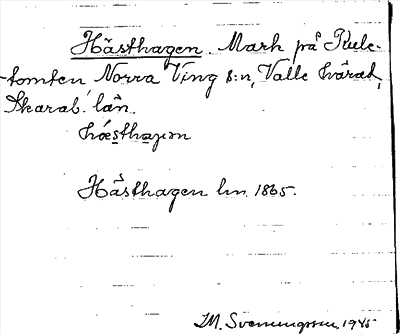 Hästhagen. Mark på Rule-
-tomten Norra Ving s:n, Valle härad,
Skarab. län.
hæsthaʒən
Hästhagen lm. 1865.
M. Svenungsson 1945